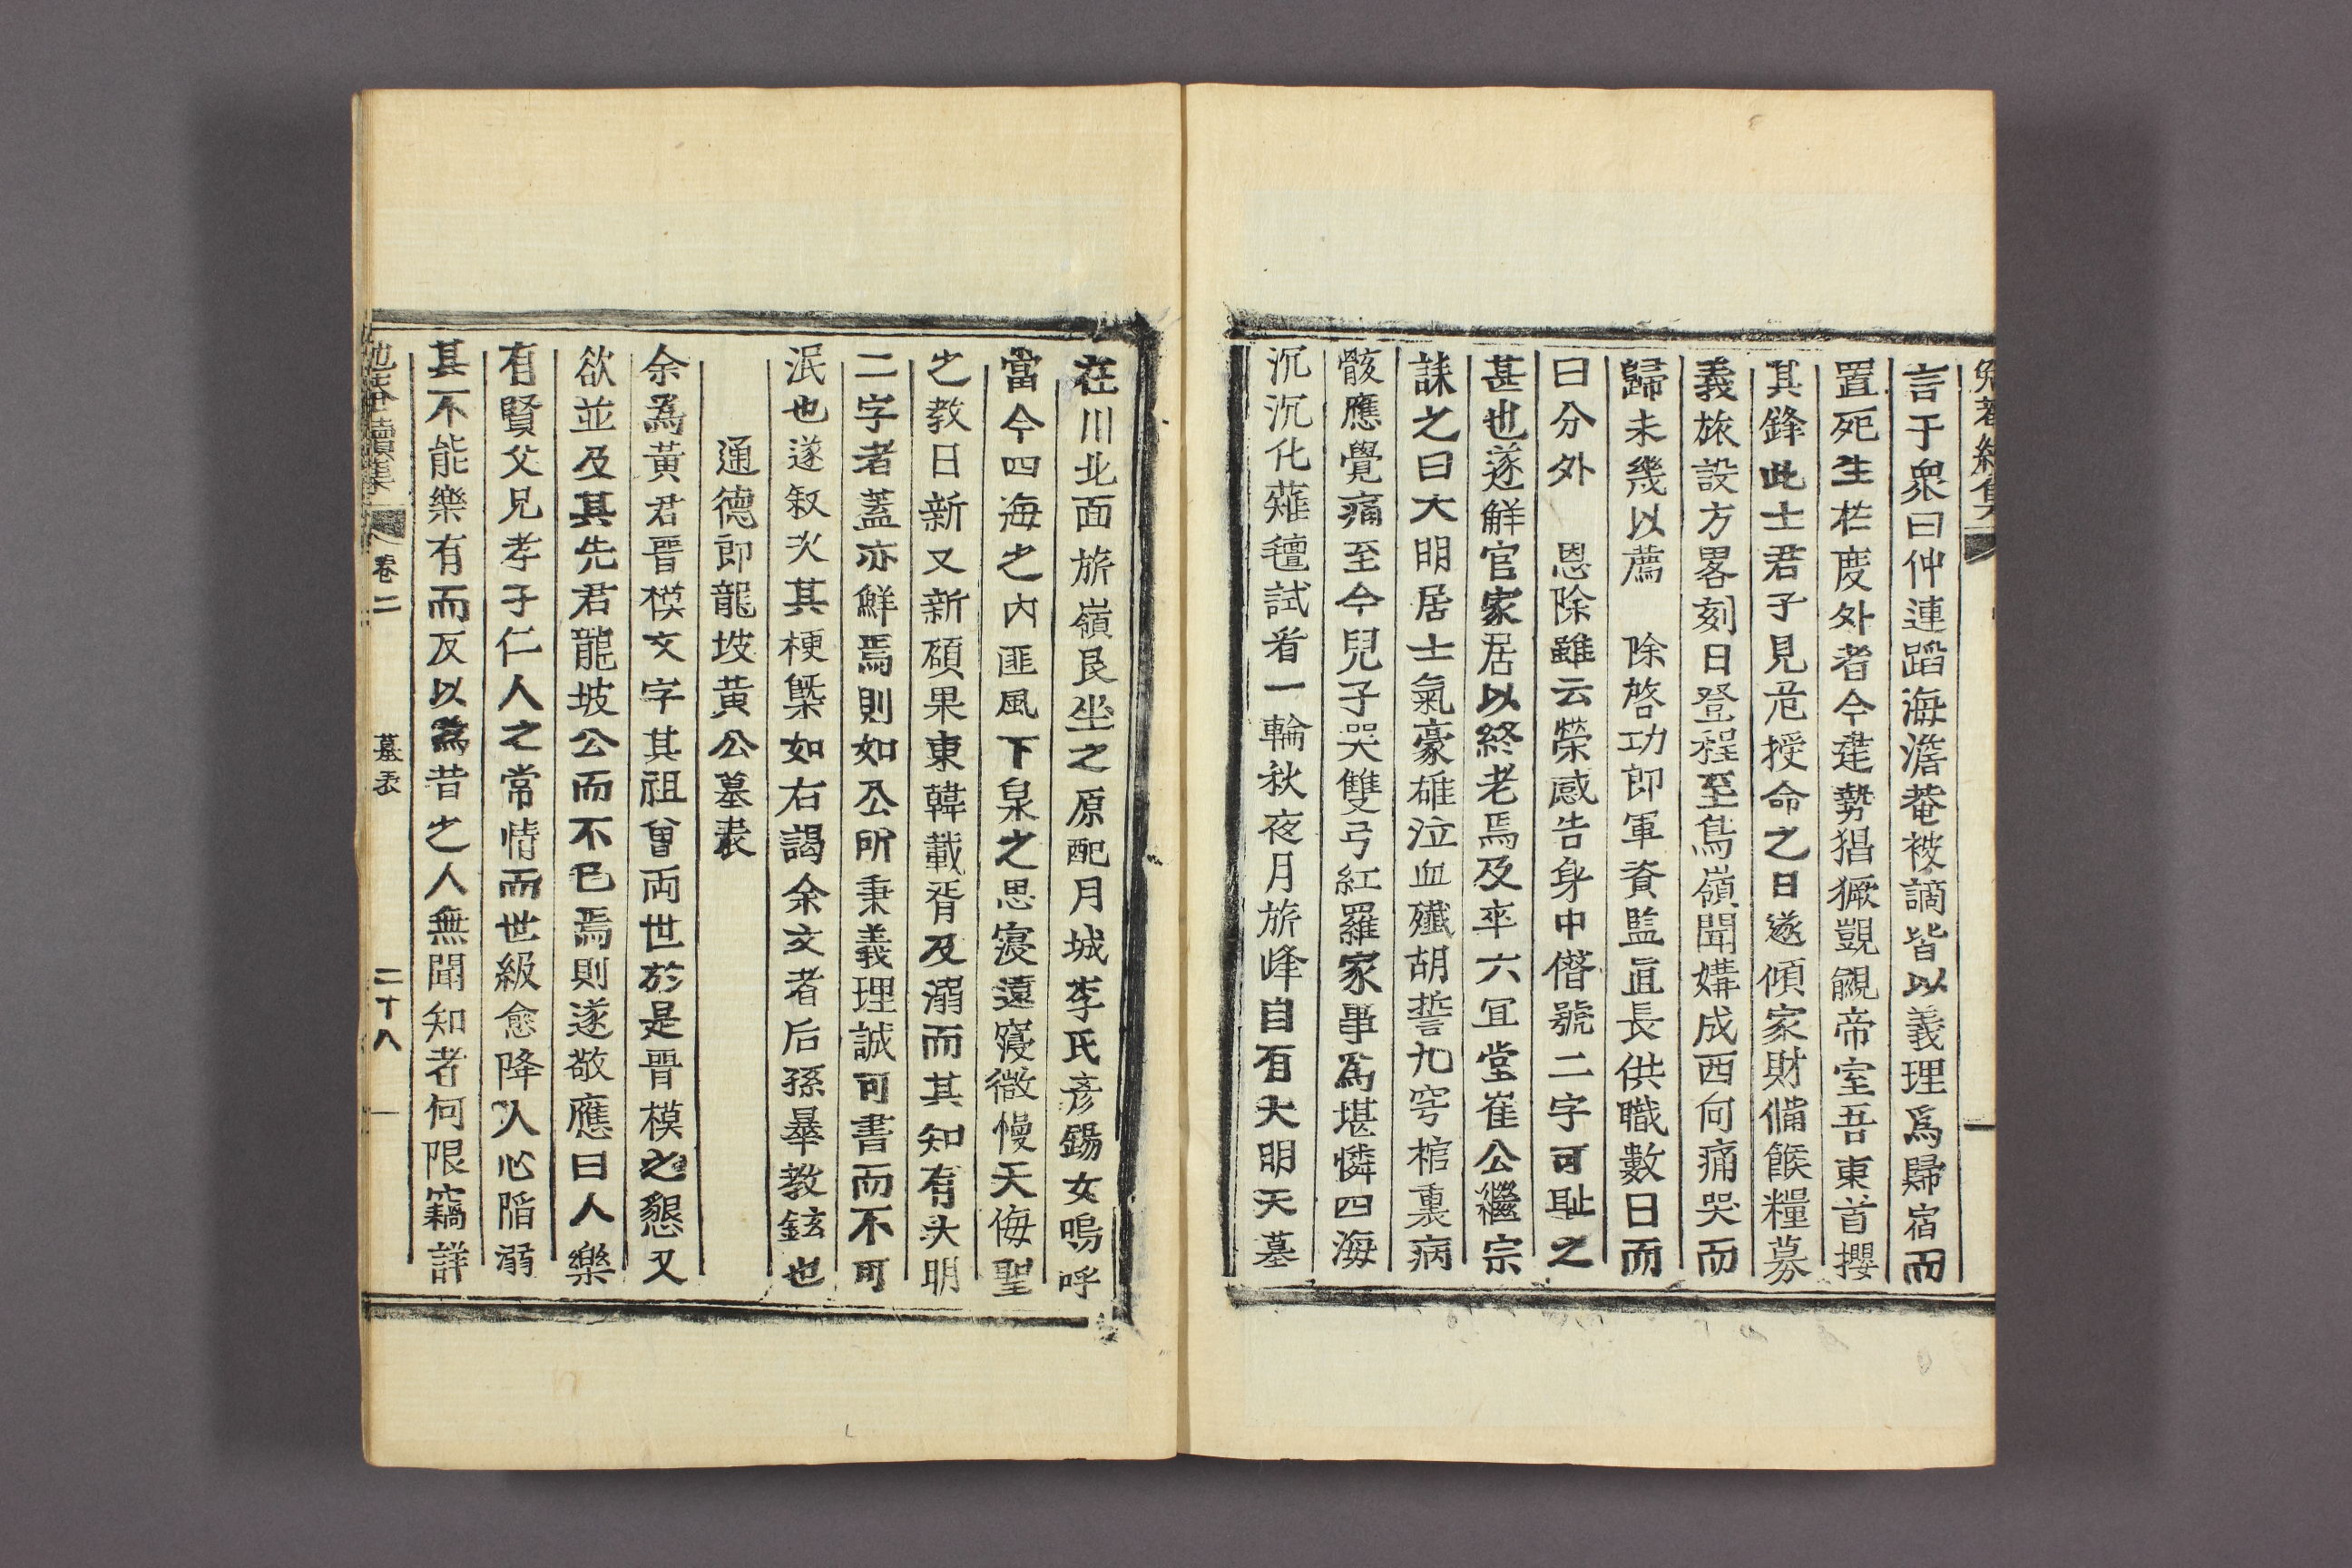 言于衆曰仲連蹈海澹菴被謫皆以義理爲歸宿而
置死生於度外者今㺚勢猖獗覬覦帝室吾東首攖
其鋒此士君子見危授命之日遂傾家財備餱糧募
義旅設方畧刻日登程至鳥嶺聞媾成西向痛哭而
歸未幾以薦　除啓功郎軍資監直長供職數日而
曰分外　恩除雖云榮感告身中僭號二字可耻之
甚也遂解官家居以終老焉及卒六冝堂崔公繼宗
誄之曰大明居士氣豪雄泣血殲胡誓九穹棺裏病
骸應覺痛至今兒子哭雙弓紅羅家事爲堪憐四海
沉沉化薙氊試看一輪秋夜月旅峰自有大明天墓
在川北面旅嶺艮坐之原配月城李氏彦錫女嗚呼
當今四海之內匪風下泉之思寖遠寢微慢天侮聖
之教日新又新碩果東韓載胥及溺而其知有大明
二字者蓋亦鮮焉則如公所秉義理誠可書而不可
泯也遂叙次其梗槩如右謁余文者后孫㬥教鉉也
通德郎龍坡黃公墓表
余爲黃君晋模文字其祖曾両世於是晋模之懇又
欲並及其先君龍坡公而不已焉則遂敬應曰人樂
有賢父兄孝子仁人之常情而世級愈降人心陷溺
甚不能樂有而反以爲昔之人無聞知者何限竊詳
續集　卷二　墓表　二十八